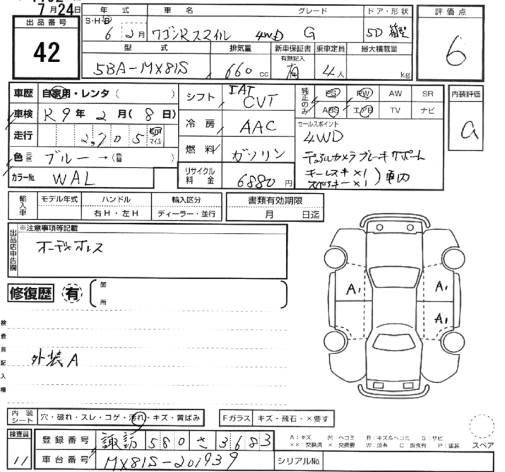 7月24日
出品番号
42
年式 車名 グレード ドア・形状
S・H・R
6年 2月 ワゴンRスマイル 4WD G 5D 箱型
型式 排気量 新車保証書 乗車定員 最大積載量
有無記入
5BA-MX81S 660cc 有 4人 kg
評価点
6
内装評価
a
車歴 自家用・レンタ( )
車検 R9年2月(8日)
走行 2,705 km マイル
色 ブルー→(替 )
カラーNo. WAL
シフト IAT CVT
冷房 AAC
燃料 ガソリン
リサイクル料金 6880円
純正のみ PS PW AW SR
ABS エアB TV ナビ
セールスポイント
4WD
デュアルカメラブレーキサポート
キーレスキー×1
スペアキー×1 )車内
輸入車 モデル年式 ハンドル 輸入区分
右H・左H ディーラー・並行
書類有効期限
月 日迄
出品店申告欄
※注意事項等記載
オーディオレス
修復歴 有
箇所
検査員記入欄
外装A
A1
A1
A1
内装シート 穴・破れ・スレ・コゲ・汚れ・キズ・黄ばみ
Fガラス キズ・飛石・×要す
検査員
11
登録番号 諏訪 580 さ 3683
車台番号 MX81S-201939
シリアルNo.
A:キズ
スペア